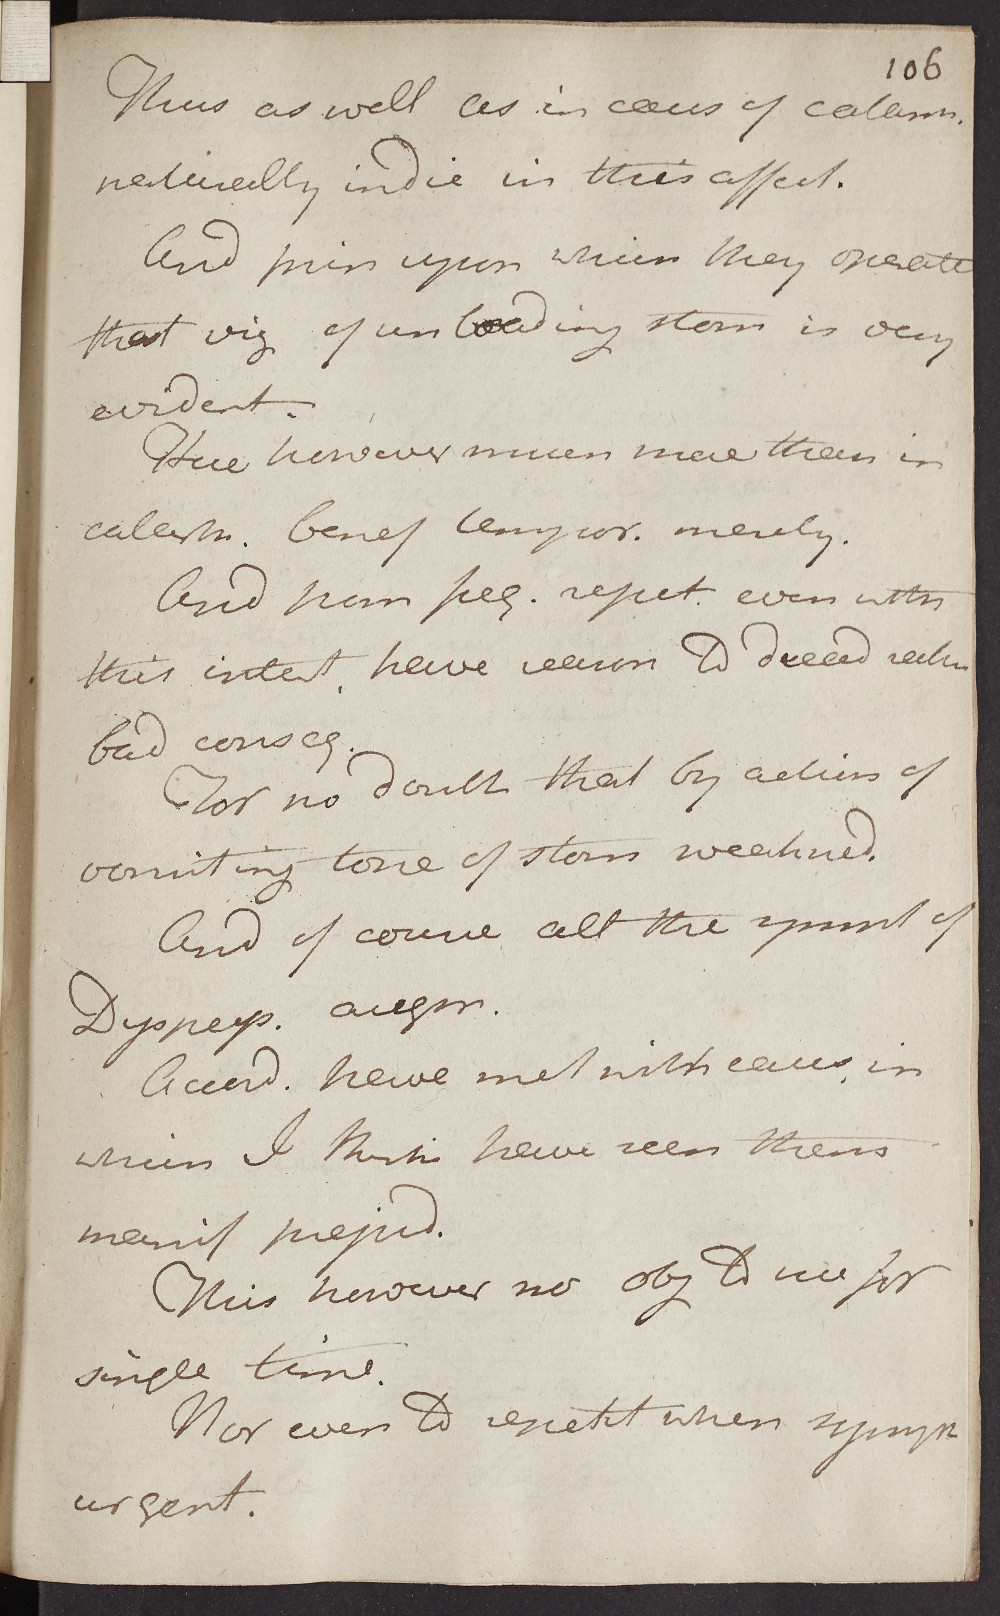 106
Thus as well as in caus of catarrh.
naturally indic in this affect.
And prin upon which they operate
that viz of unloading stom is very
evident.
Here however much more than in
catarrh. benef tempor. merely.
And from freq. repet. even with
this intent, have reason to dread
bad conseq.
For no doubt that by action of
vomiting tone of stom weakned.
And of course all the sympt of
Dyspeps. augm.
Accord. have met with caus, in
which I think have seen them
manif prejud.
This however no obj to use for
single time.
Nor even to repetit when sympt
urgent.